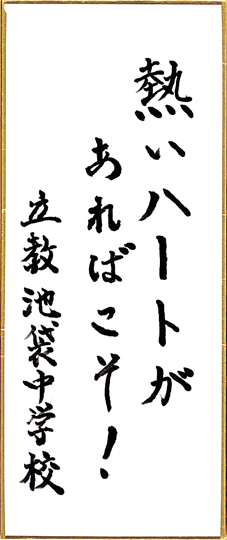 熱いハートが
あればこそ！
立教池袋中学校